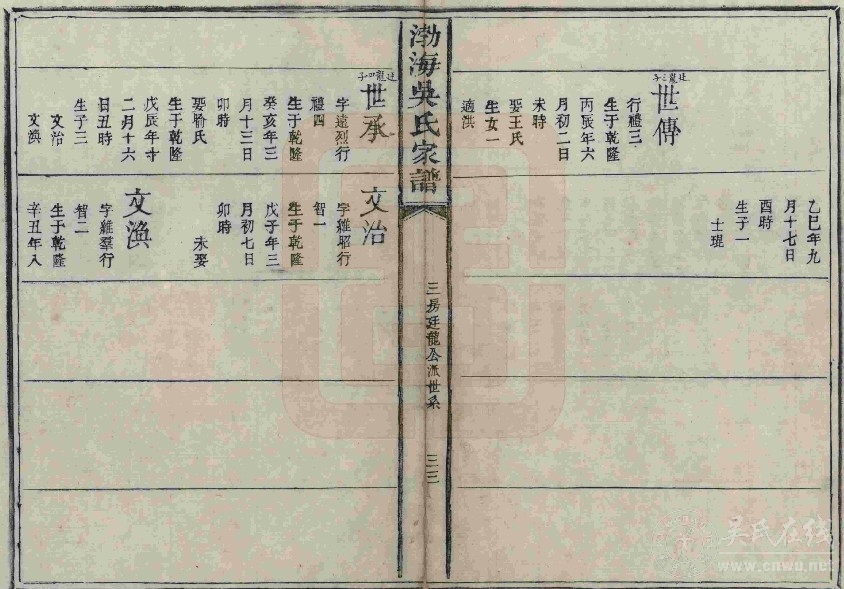 廷龍三子
世傳
行禮三
生于乾隆
丙辰年六
月初二日
未時
娶王氏
生女一
適洪
乙巳年九
月十七日
酉時
生子一
士琨
渤海吳氏家譜
三房廷龍公派世系
三三
廷龍四子
世承
字遠烈行
禮四
生于乾隆
癸亥年三
月十三日
卯時
娶喻氏
生于乾隆
戊辰年十
二月十六
日丑時
生子三
文治
文渙
文治
字維昭行
智一
生于乾隆
戊子年三
月初七日
卯時
未娶
文渙
字維羣行
智二
生于乾隆
辛丑年八
吳氏在线
www.cnwu.net